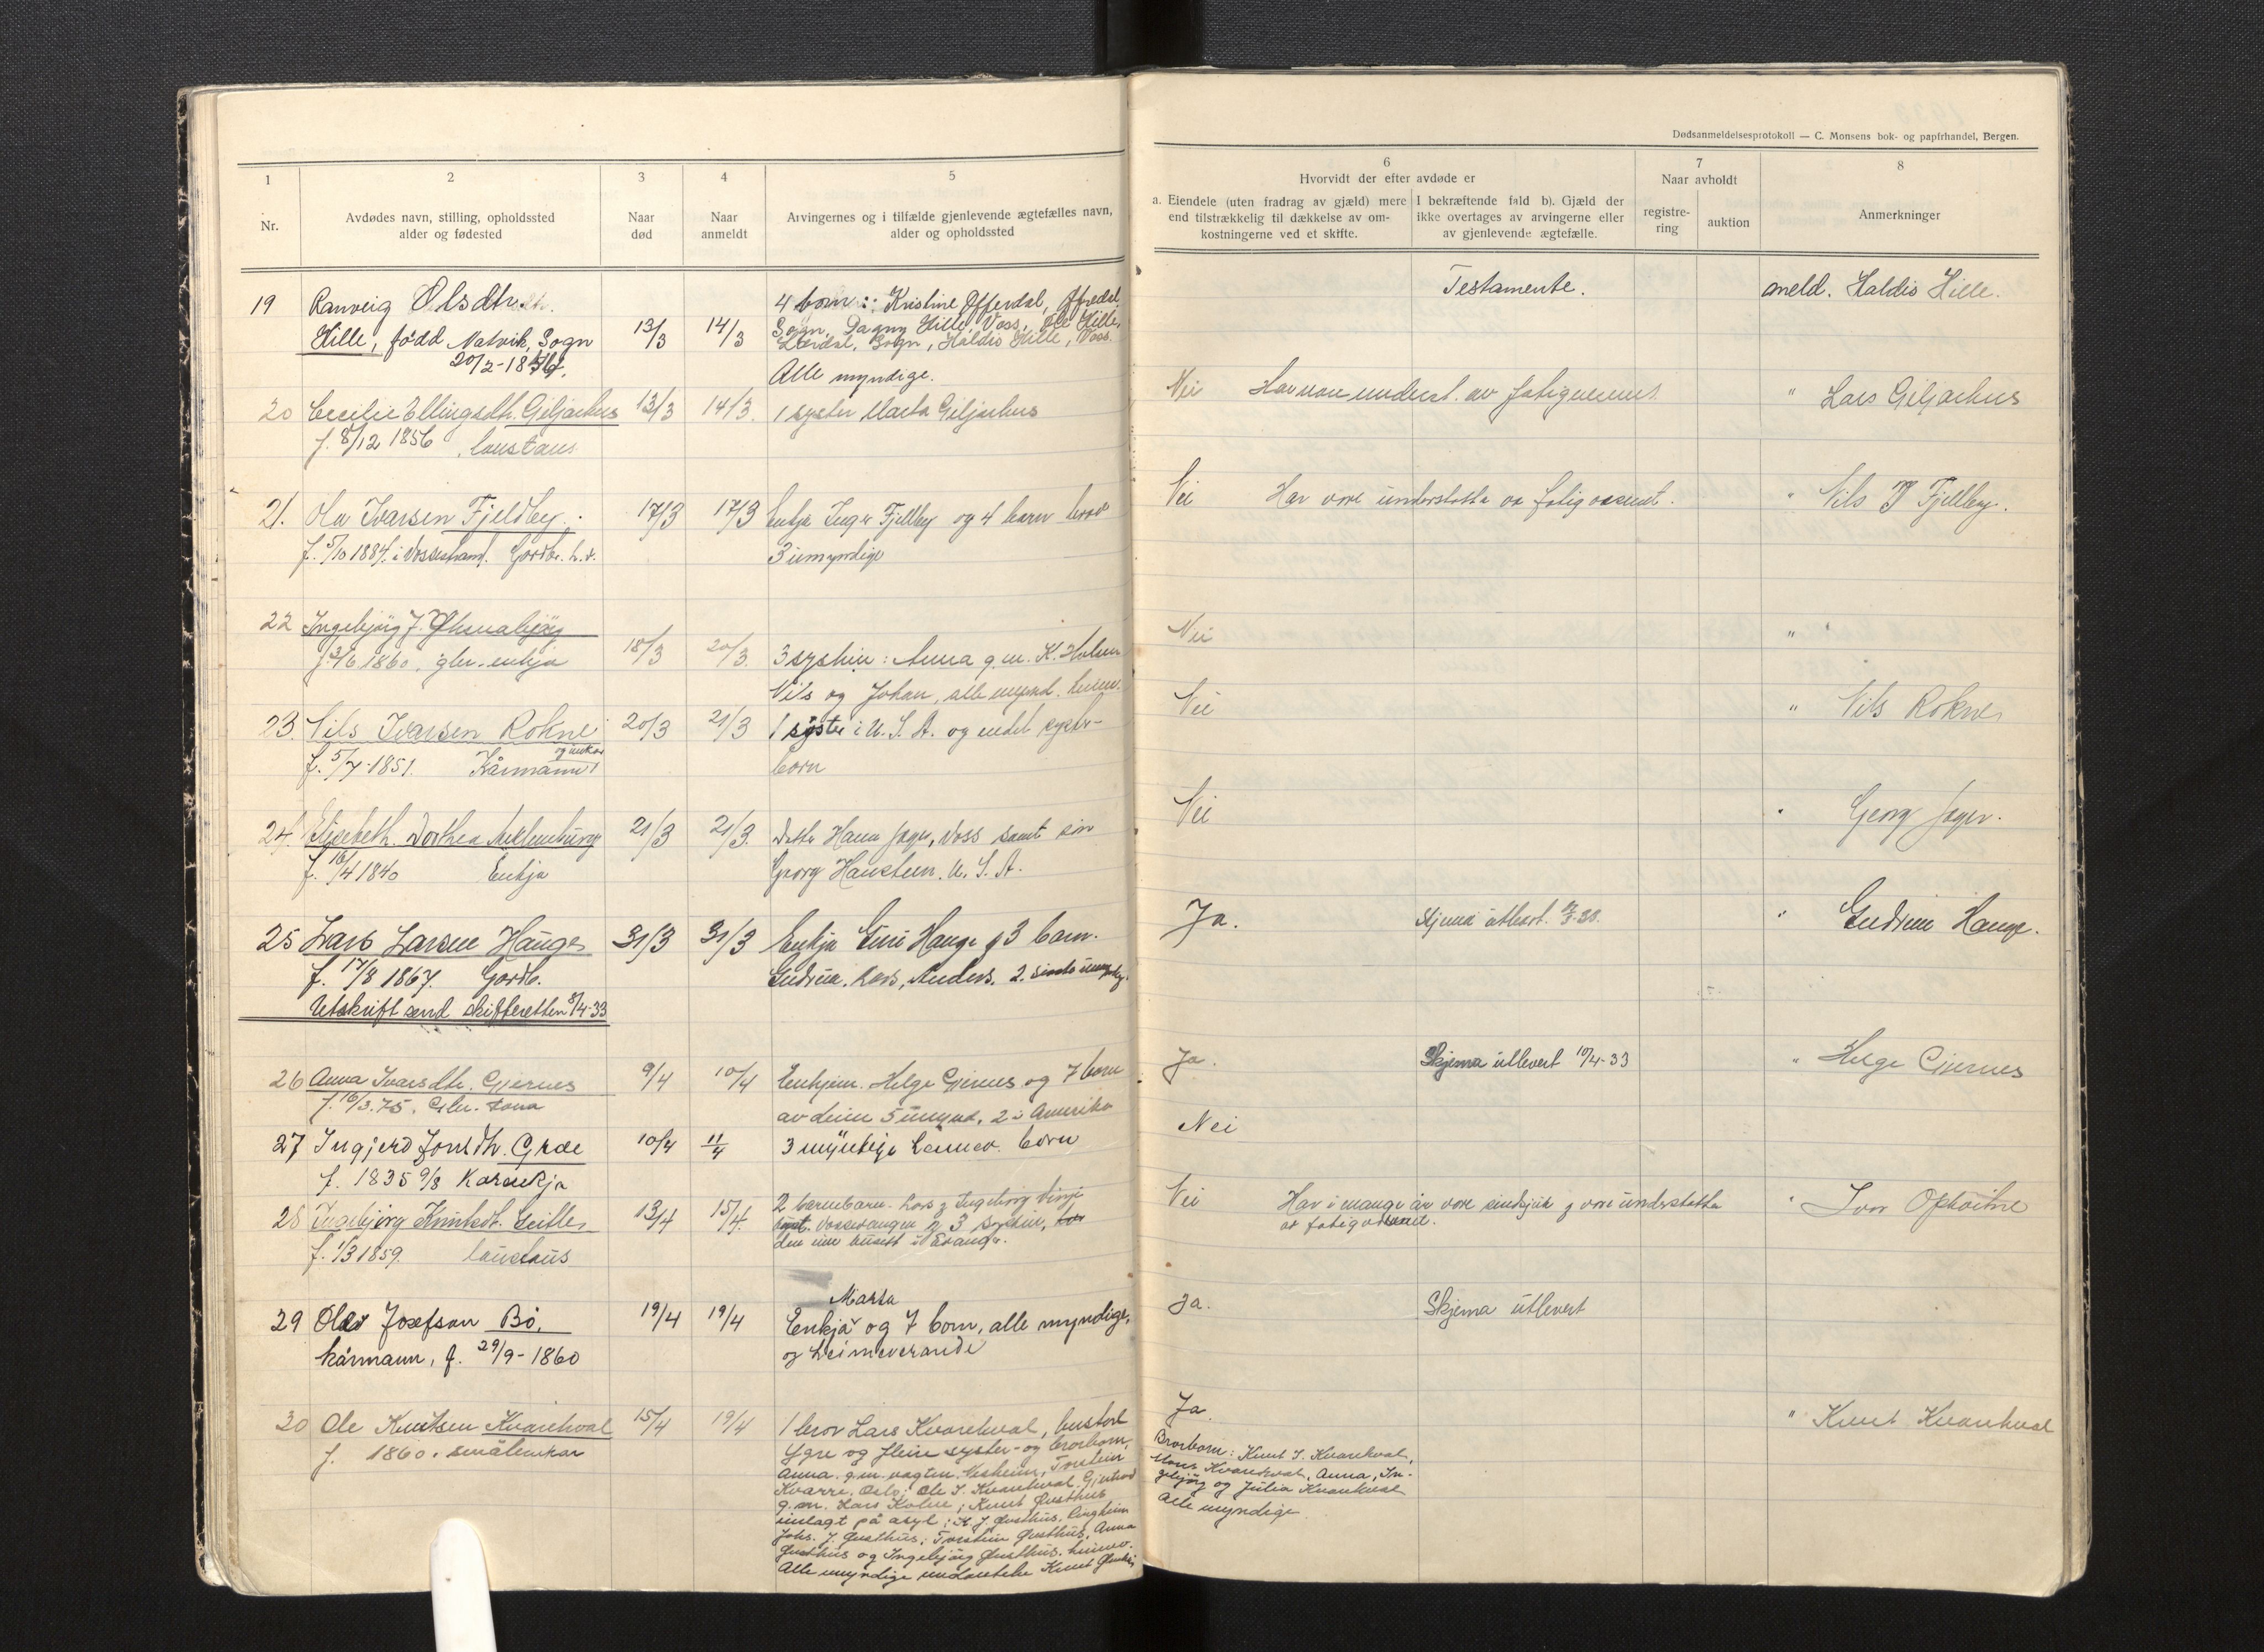 Dødsanmeldelsesprotokoll — C. Monsens bok- og papirhandel, Bergen.
1
Nr.
2
Avdødes navn, stilling, opholdssted
alder og fødested
3
Naar
død
4
Naar
anmeldt
5
Arvingernes og i tilfælde gjenlevende ægtefælles navn,
alder og opholdssted
6
Hvorvidt der efter avdøde er
a. Eiendele (uten fradrag av gjæld) mere
end tilstrækkelig til dækkelse av om-
kostningerne ved et skifte.
I bekræftende fald b). Gjæld der
ikke overtages av arvingerne eller
av gjenlevende ægtefælle.
7
Naar avholdt
registre-
ring
auktion
8
Anmerkninger
19 Ranveig Olsdtr.
Hille, født Natvik, Sogn
20/2-18
13/3 14/3
4 born: Kristine Offerdal, Offredal
Sogn, Dagny Hille, Voss, Ole Hille,
Lærdal, Sogn, Haldis Hille, Voss.
Alle myndige.
Testamente.
meld. Haldis Hille.
20 Cecilie Ellingsdtr. Giljarhus 13/3 14/3. 1 syster Marta Giljarhus
f. 8/12 1856, laustaus
Nei Har vore underst. av fatigvesenet
" Lars Giljarhus
21. Ola Ivarsen Fjeldby. 17/3 17/3 Enkja Inger Fjellby og 4 barn herav
f. 5/10 1884. i Vossestrand. Gardbr. 3 umyndige
Nei Har vore understøtta av fatigvesenet.
" Nils Fjellby.
22 Ingebjörg J.
f. 3/6 1860. gbr. enkja 18/3 20/3. 3 syskin: Anna g.m. K.
Nils og Johan, alle mynd. heim.
Nei "
23. Nils Ivarsen Rokne 20/3 21/3 1 syster i U. S. A. og endel syster-
f. 5/7-1851. Kårmann og unkar born
Nei " Nils Rokne
24. Elisebeth Dorthea 21/3 21/3. Dotter Hanna Jager, Voss samt son
f. 16/4 1840 Enkja Georg Hansteen. U. S. A.
Nei " Georg Jager.
25 Lars Larsen Hauge 31/3 31/3 Enkja Guri Hauge og 3 barn.
f. 17/8 1867. Gardb. Gudrun, Lars, Anders. 2. siste umyndig.
Utskrift send skifteretten 8/4-33
Ja. Skjema utlevert.
" Gudrun Hauge.
26 Anna Ivarsdtr. Gjernes 9/4 10/4 Enkjem. Helge Gjernes og 7 born
f. 16/3.75. Gbr. kona av deim 5 umynd. 2 i Amerika
Ja. Skjema utlevert 10/4-33
" Helge Gjernes
27 Ingjerd Jonsdtr. Grae 10/4 11/4 3 myndige heimev. born
f. 1835 9/8 Kårenkja
Nei
28 Ingebjörg Knutsdt. Seilles 13/4 15/4. 2 barnebarn. Lars og Ingeborg Vinje
f. 1/3 1859. laustaus Vossevangen og 3 syskin,
den eine busett i Evanger.
Nei Har i mange år vore sindsjuk og vore understøtta
av fatigvesenet.
" Ivar Opheine
29 Olav Josefson Bö. 19/4 19/4
Marta
Enkja og 7 born, alle myndige,
kårmann, f. 29/9-1860 og heimeverande
Ja. Skjema utlevert
30 Ole Knutsen Kvarekval 15/4 19/4 1 bror Lars Kvarekval, bustad
f. 1860. småbrukar Ygre og fleire syster- og brorborn,
Anna g.m. Nesheim, Torstein
Kvarre, Oslo; Ole I. Kvarekval. Gjertrud
g.m. Lars Kolve; Knut Gusthus
innlagt på asyl; K. J. Gusthus.
Johs. J. Gusthus; Torstein Gusthus, Anna
Gusthus og Ingebjörg Gusthus. heimev.
Alle myndige undanteke Knut
Ja.
Brorborn: Knut I. Kvarekval,
Kvarekval, Anna, In-
gebjörg og Julia Kvarekval
Alle myndige.
" Knut Kvarekval